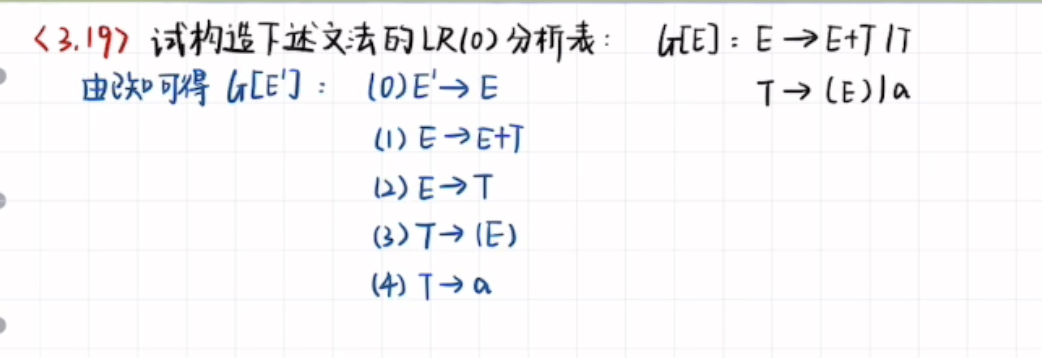 <3.19> 试构造下述文法的LR(0)分析表: G[E]: E→E+T|T
由已知可得 G[E']: (0)E'→E T→(E)|a
(1) E→E+T
(2) E→T
(3) T→(E)
(4) T→a